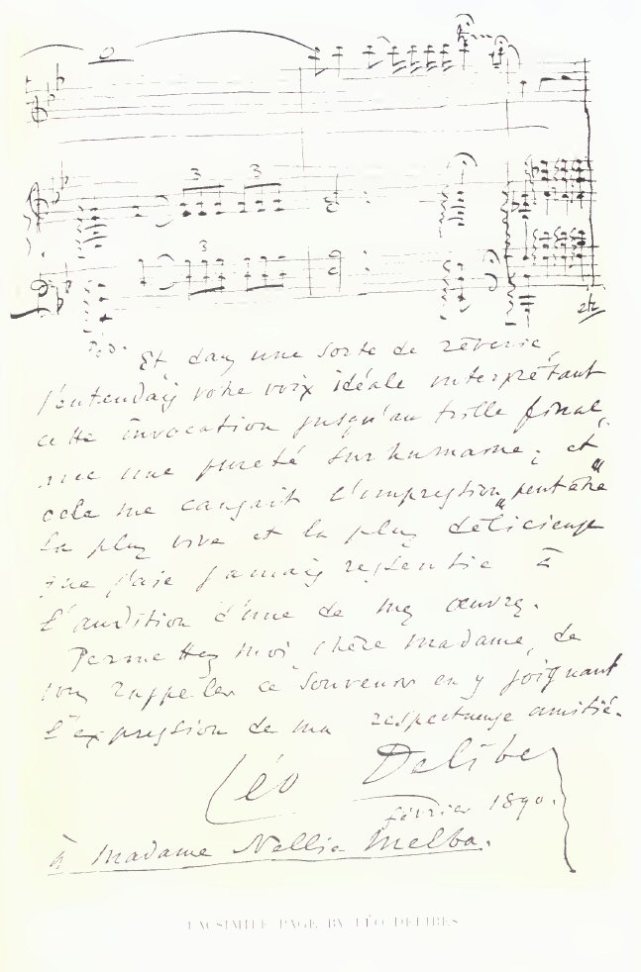 3 3
3
Ped.
Et dans une sorte de rêverie,
j'entendais votre voix idéale interprétant
cette invocation jusqu'au trille final,
avec une pureté surhumaine; et
cela me causait l'impression "peut être"
la plus vive et la plus délicieuse
que j'aie jamais ressentie à
l'audition d'une de mes œuvres.
Permettez moi chère madame, de
vous rappeler ce souvenir en y joignant
l'expression de ma respectueuse amitié.
Léo Delibes
février 1890.
à Madame Nellie Melba.
FACSIMILE PAGE BY LÉO DELIBES